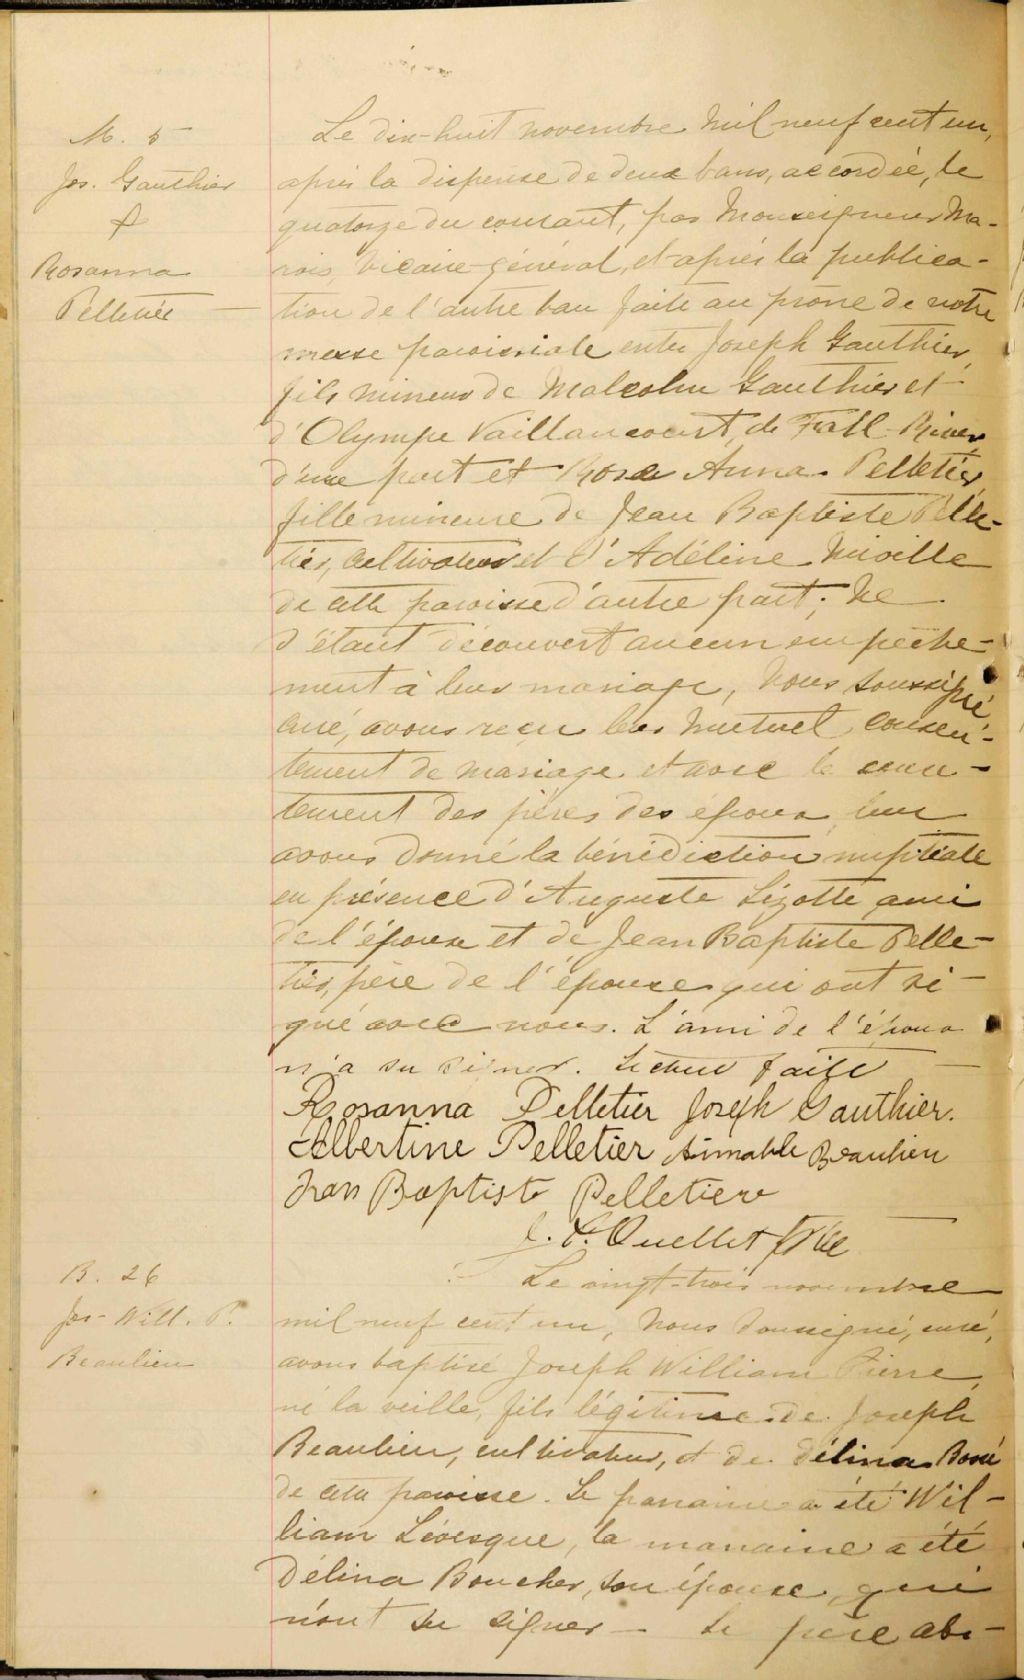 M. 5
Jos. Gauthier
&
Rosanna
Pelletier
Le dix-huit novembre mil neuf cent un,
après la dispense de deux bans, accordée, le
quatorze du courant, par Monseigneur Ma-
rois, Vicaire-général, et après la publica-
tion de l'autre ban faite au prône de notre
messe paroissiale entre Joseph Gauthier,
fils mineur de Malcolm Gauthier et
d'Olympe Vaillancourt, de Fall-River
d'une part et Rose Anna Pelletier,
fille mineure de Jean Baptiste Pelle-
tier, cultivateur et d'Adéline Miville
de cette paroisse d'autre part; Ne
s'étant découvert aucun empêche-
ment à leur mariage, Nous soussigné,
curé, avons reçu leur mutuel consen-
tement de mariage et avec le consen-
tement des pères des époux leur
avons donné la bénédiction nuptiale
en présence d'Auguste Lizotte ami
de l'époux et de Jean Baptiste Pelle-
tier, père de l'épouse qui ont si-
gné avec nous. L'ami de l'époux
n'a su signer. Lecture faite
Rosanna Pelletier Joseph Gauthier.
Albertine Pelletier Aimable Beaulieu
Jean Baptiste Pelletier
J. Ouellet Ptre
B. 26
Jos. Will. P.
Beaulieu
Le vingt-trois novembre
mil neuf cent un, Nous soussigné, curé,
avons baptisé Joseph William Pierre,
né la veille, fils légitime de Joseph
Beaulieu, cultivateur, et de Délina Bossé
de cette paroisse. Le parrain a été Wil-
liam Lévesque, la marraine a été
Délina Boucher, son épouse, qui
n'ont su signer - Le père abs-